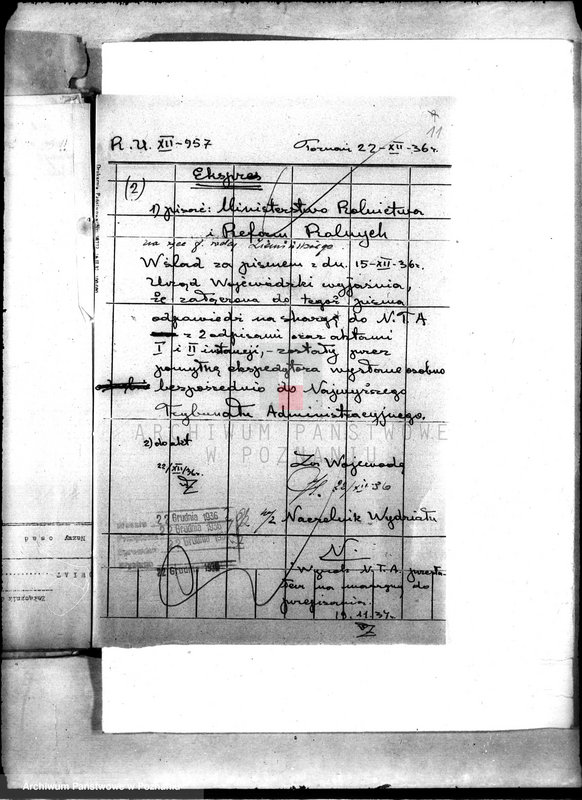 11
R.U. XII-957
Toruń 22-XII-36r.
Ekspres
(2)
1) pisać: Ministerstwo Rolnictwa
i Reform Rolnych
na ręce p. radcy
W ślad za pismem z dn. 15-XII-36r.
Urząd Wojewódzki wyjaśnia,
że załączona do tegoż pisma
odpowiedź na skargę do N.T.A
z 2 odpisami oraz aktami
I i II instancji, - zostały przez
pomyłkę ekspedytora wysłane osobno
bezpośrednio do Najwyższego
Trybunału Administracyjnego.
ARCHIWUM PAŃSTWOWE
W POZNANIU
2) do akt
22/XII/36r.
Za Wojewodę
22/XII 36
Naczelnik Wydziału
22 Grudnia 1936
22 Grudnia 1936
N.
Wyrok N.T.A. przesłać
na maszynę do
przepisania.
19.11.37r.
Nazwy osad
Archiwum Państwowe w Poznaniu